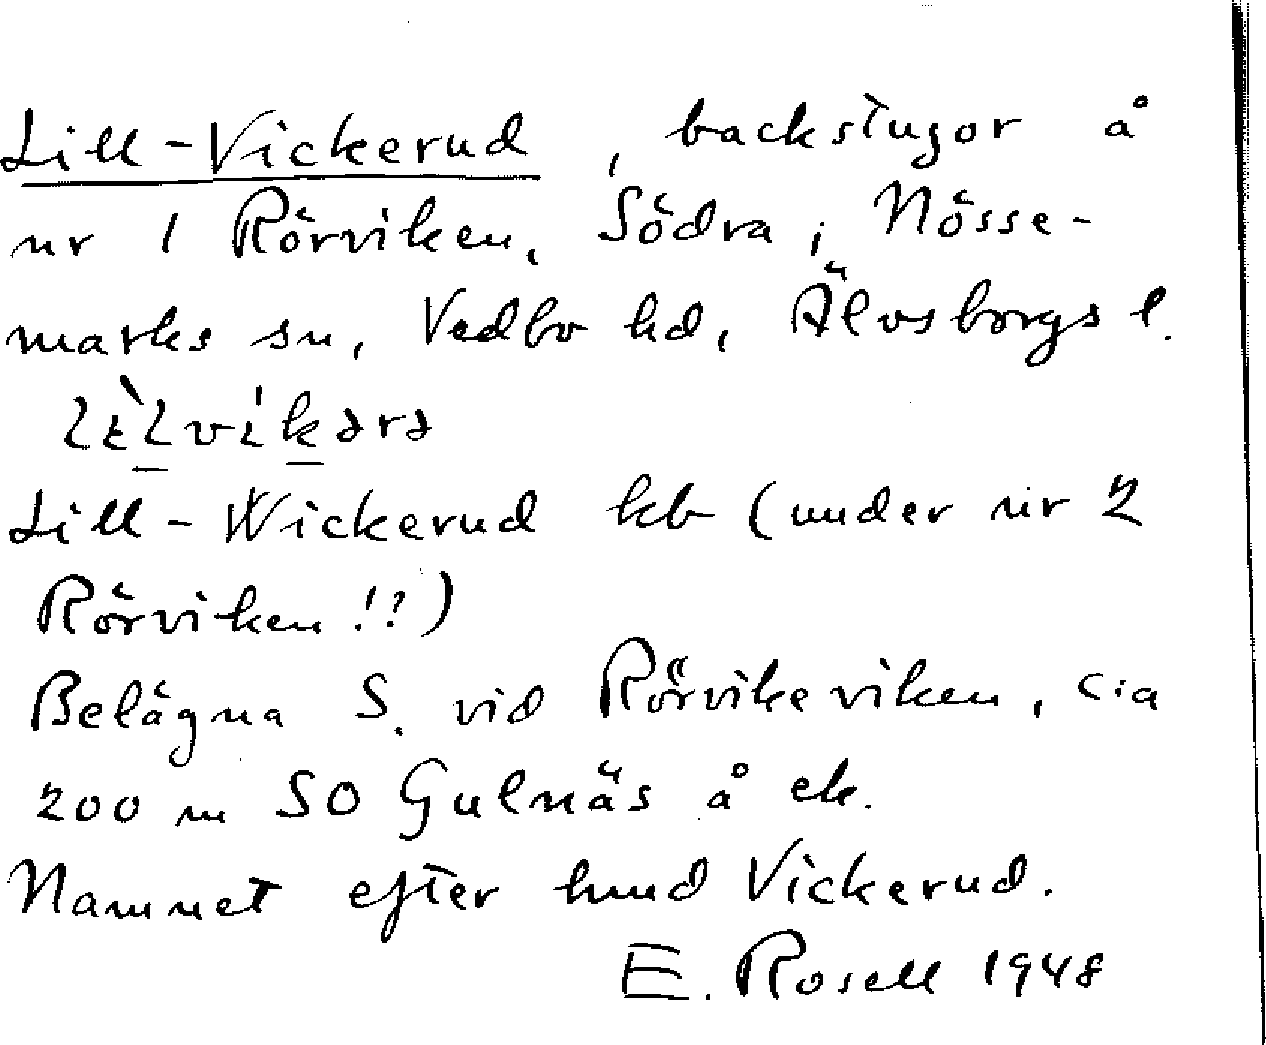 Lill-Vickerud, backstugor å
nr 1 Rörviken, Södra, i Nösse-
marks sn, Vedbo hd, Älvsborgs l.
Lill-Wickerud kb (under nr 2
Rörviken!?)
Belägna S. vid Rörvikeviken, c:a
200 m SO Gulnäs å ek.
Namnet efter hmd Vickerud.
E. Rosell 1948